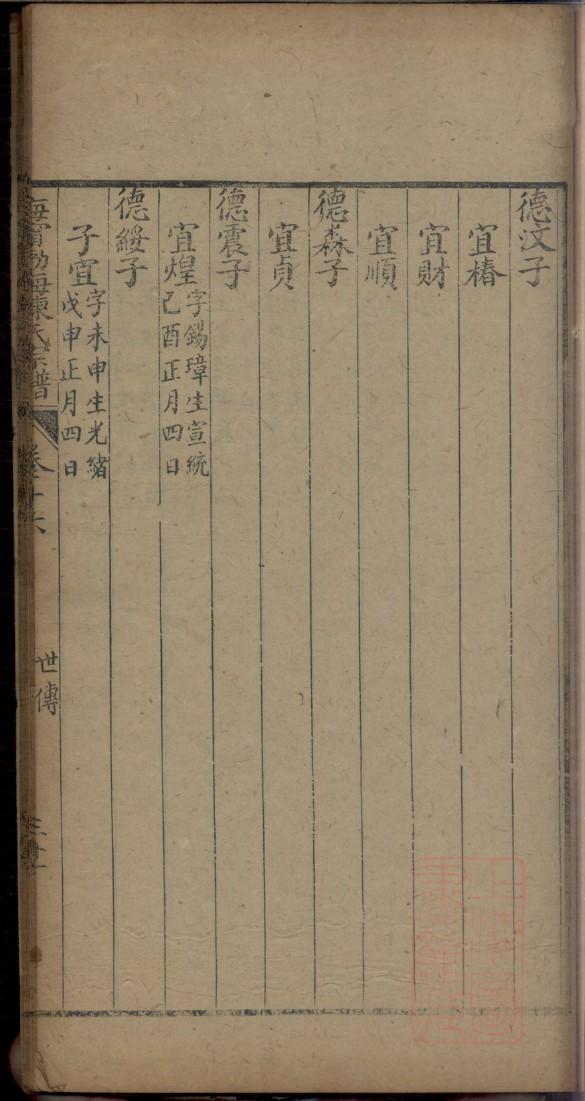 德汶子
宜椿
宜財
宜順
德森子
宜貞
德震子
宜煌字錫璋生宣統
己酉正月四日
德綏子
子宜字未申生光緒
戊申正月四日
海寧渤海陳氏宗譜
卷十六
世傳